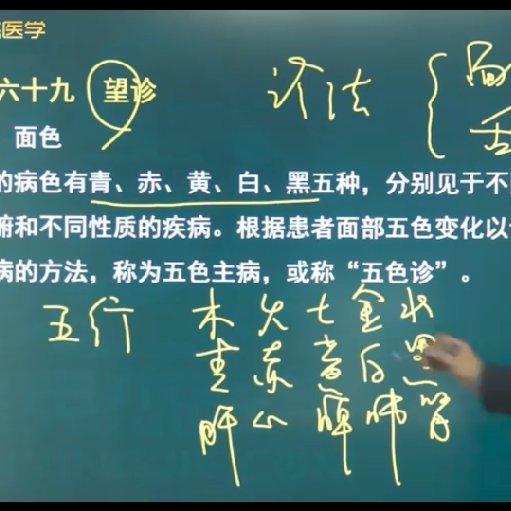 医学
六十九 望诊
诊法
面
舌
面色
的病色有青、赤、黄、白、黑五种，分别见于不
腑和不同性质的疾病。根据患者面部五色变化以
病的方法，称为五色主病，或称“五色诊”。
五行 木 火 土 金 水
青 赤 黄 白 黑
肝 心 脾 肺 肾